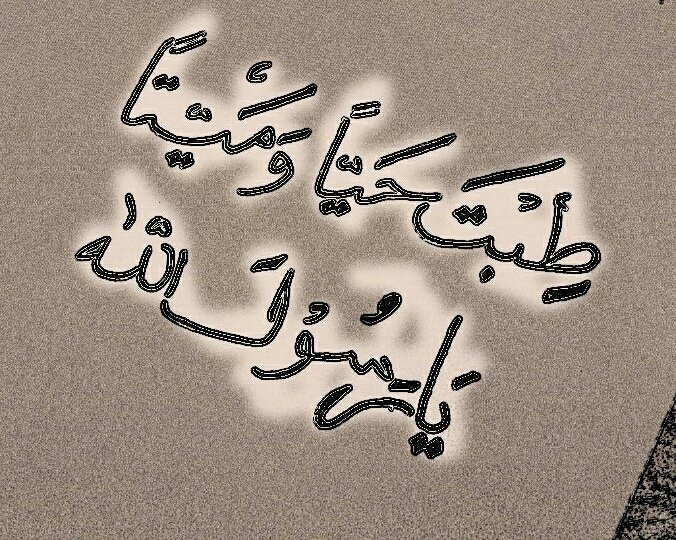 طِبْتَ حَيًّا وَمَيِّتًا
يَا رَسُولَ اللّٰه